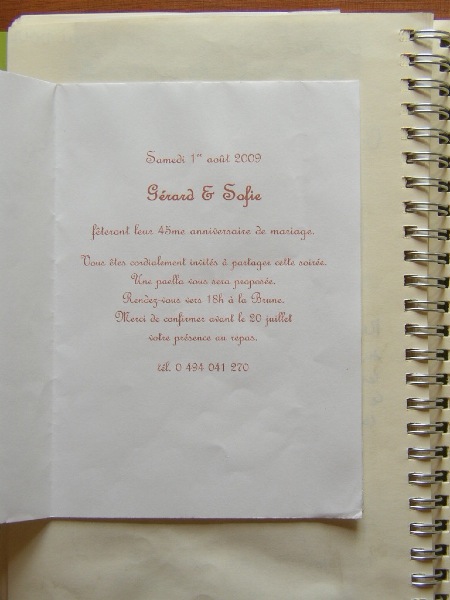 Samedi 1er août 2009
Gérard & Sofie
fêteront leur 45me anniversaire de mariage.
Vous êtes cordialement invités à partager cette soirée.
Une paella vous sera proposée.
Rendez-vous vers 18h à la Brune.
Merci de confirmer avant le 20 juillet
votre présence au repas.
tél. 0 494 041 270